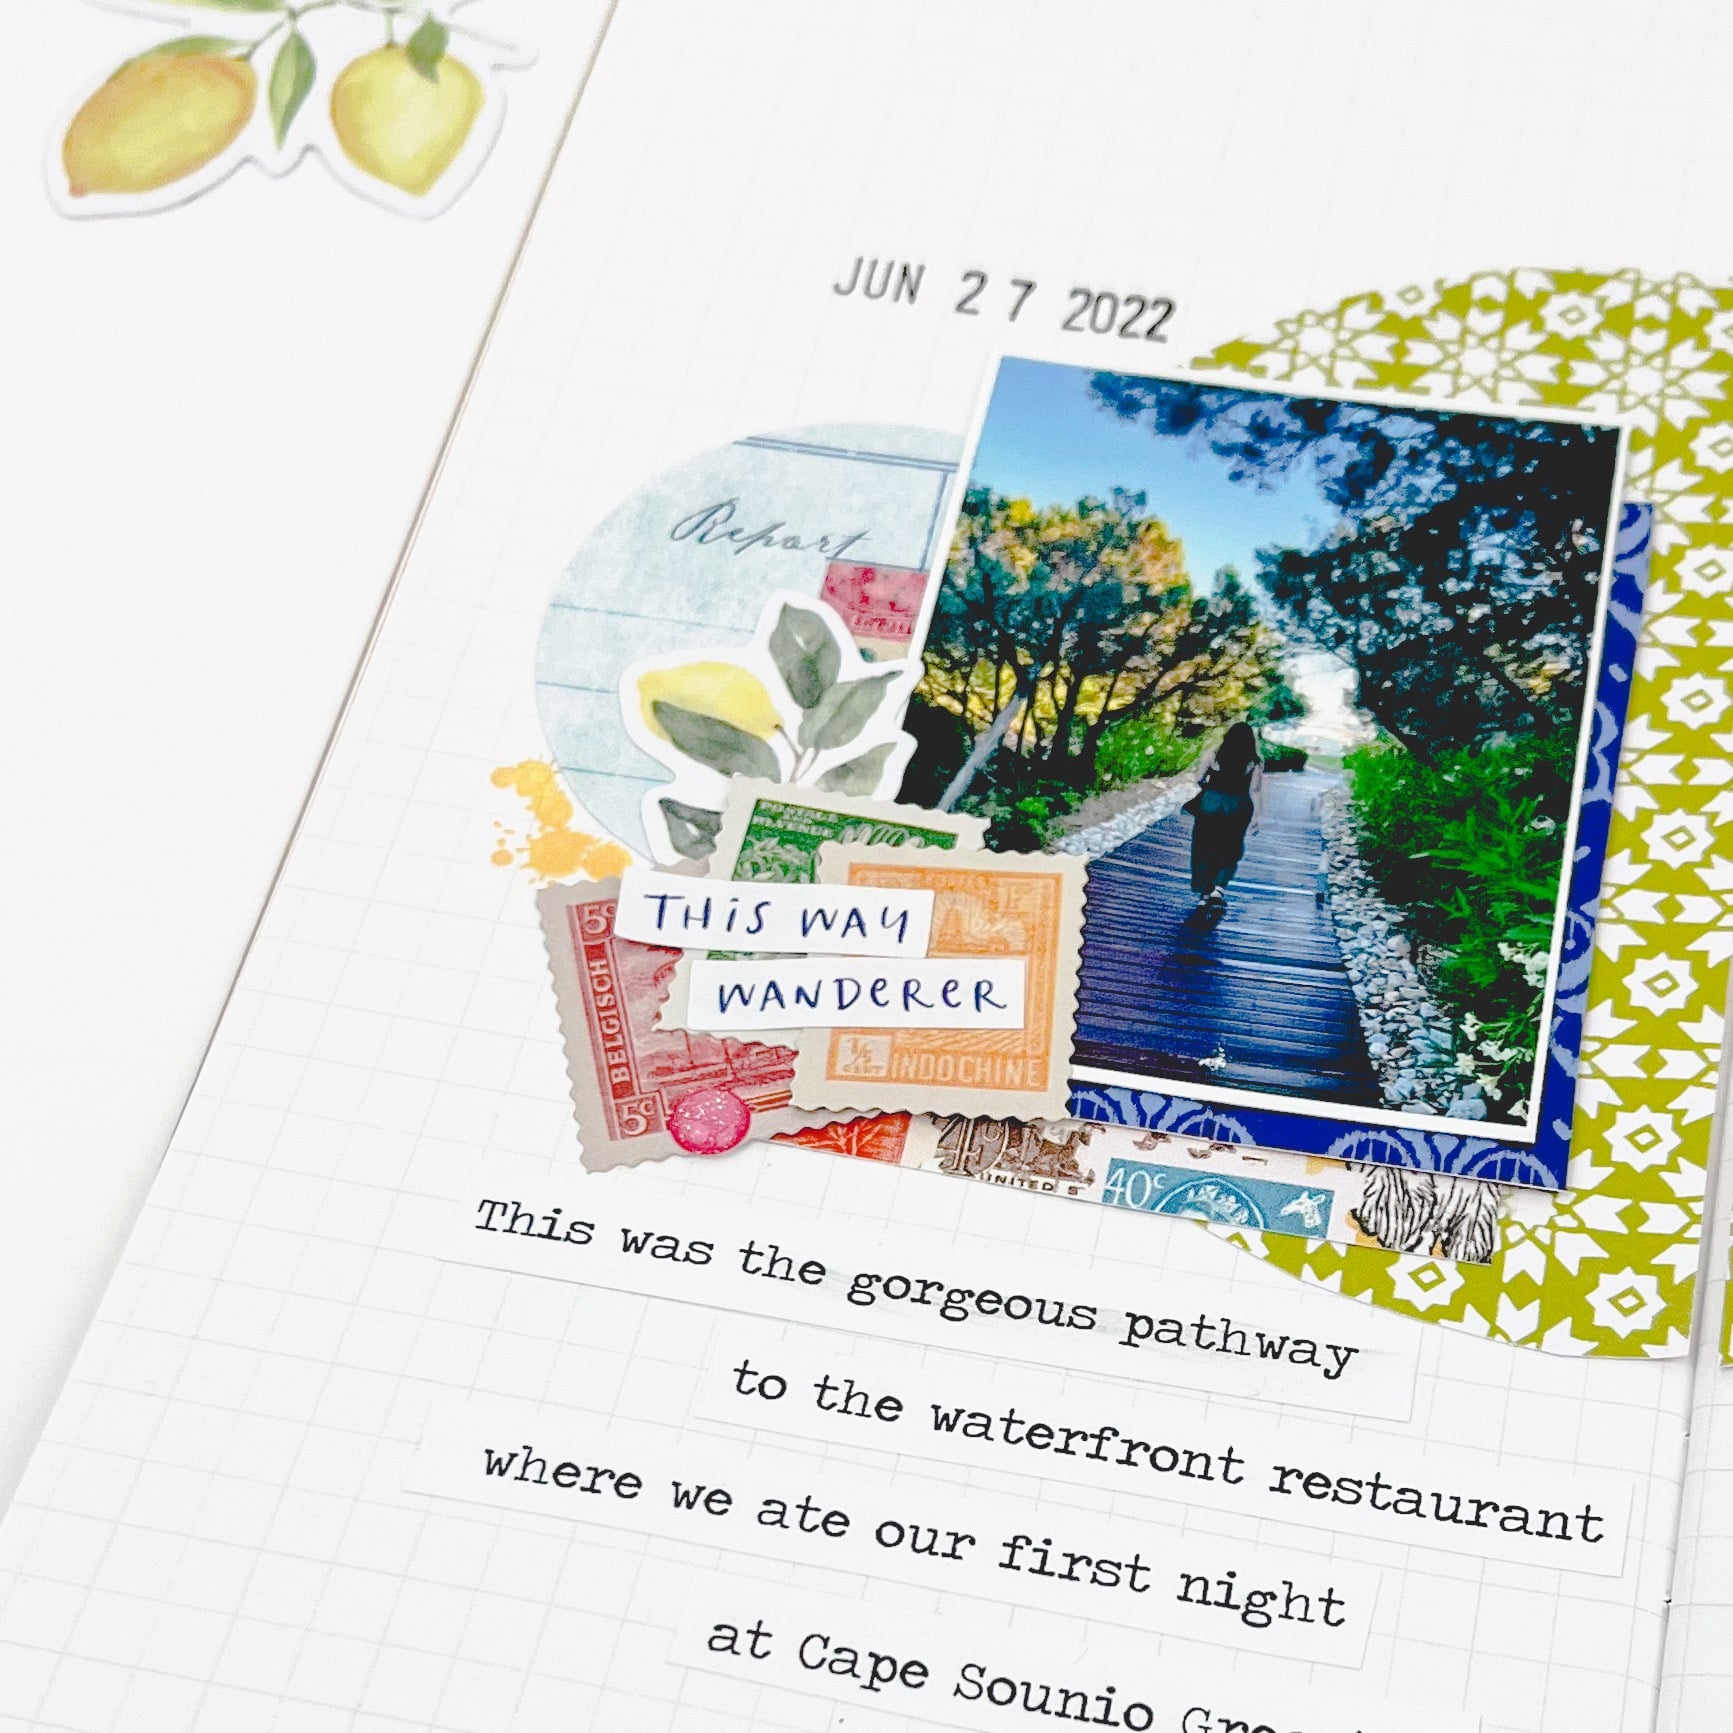 JUN 27 2022
Report
POSTAGE
REVENUE
5c
BELGISCH
5c
THiS WAY
WANDERER
1/5
INDOCHINE
UNITED S
40c
This was the gorgeous pathway
to the waterfront restaurant
where we ate our first night
at Cape Sounio